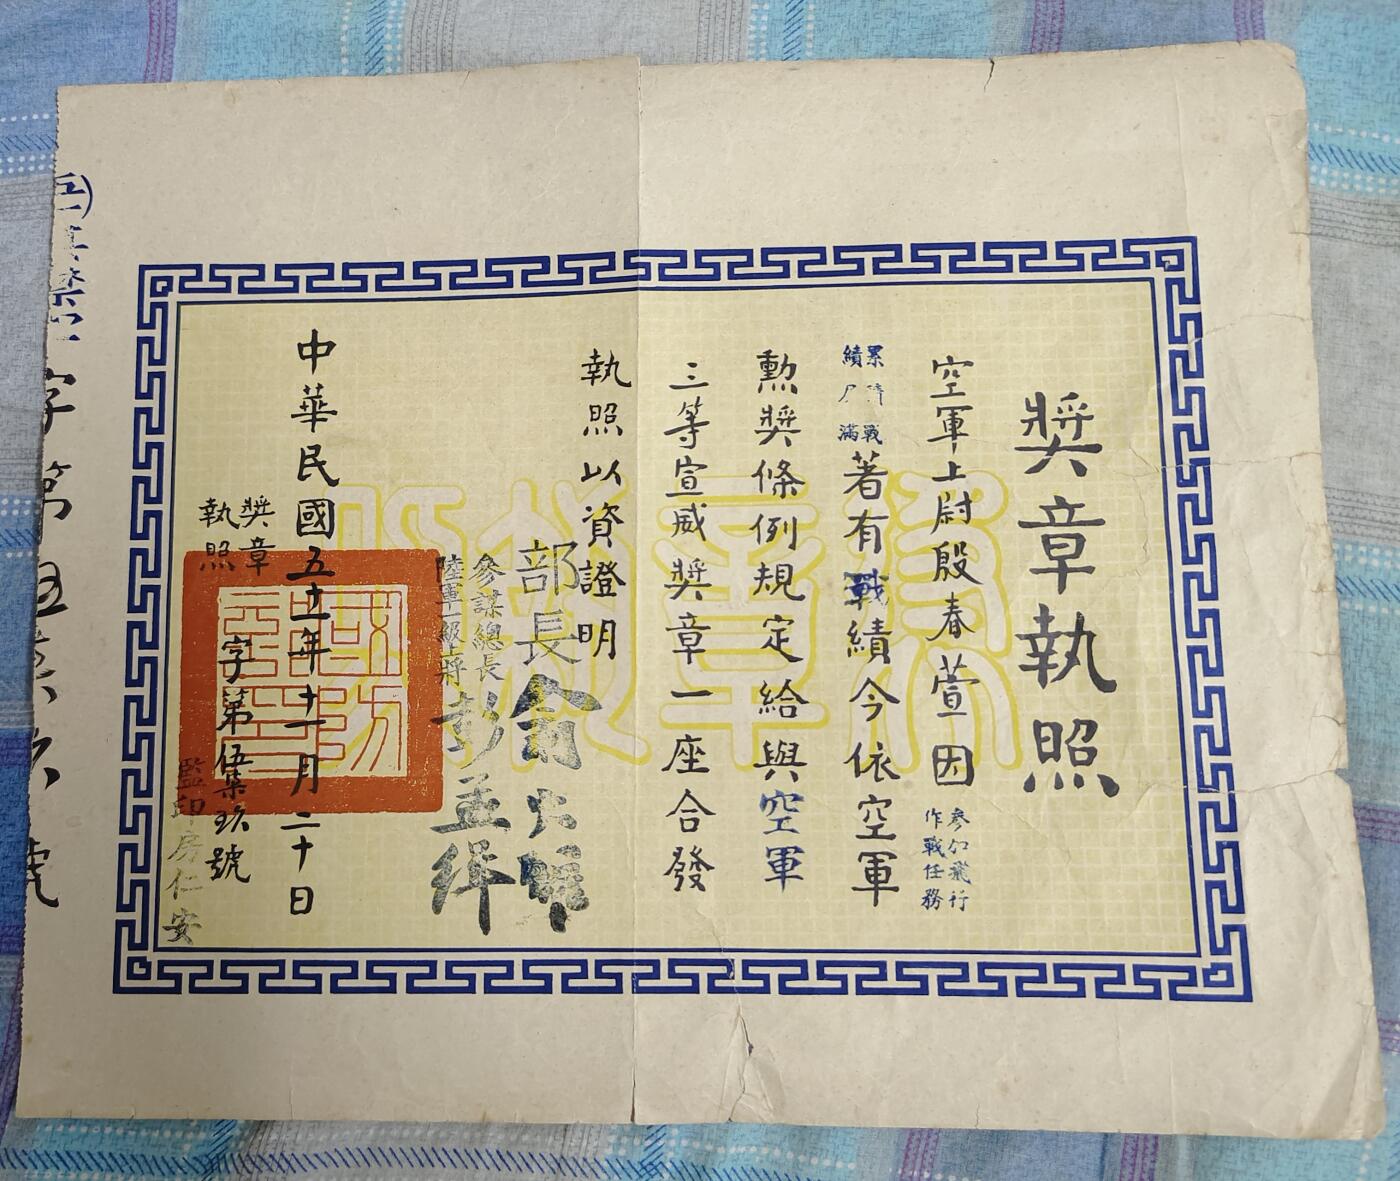 獎章執照
空軍上尉殷春萱因參加飛行作戰任務
累積戰績
滿
著有戰績今依空軍
勲獎條例規定給與空軍
三等宣威獎章一座合發
執照以資證明
部長俞大維
參謀總長
陸軍一級上將
彭孟緝
中華民國五十一年十一月二十日
獎章執照
字第伍柒玖號
監印房仁安
字第
號